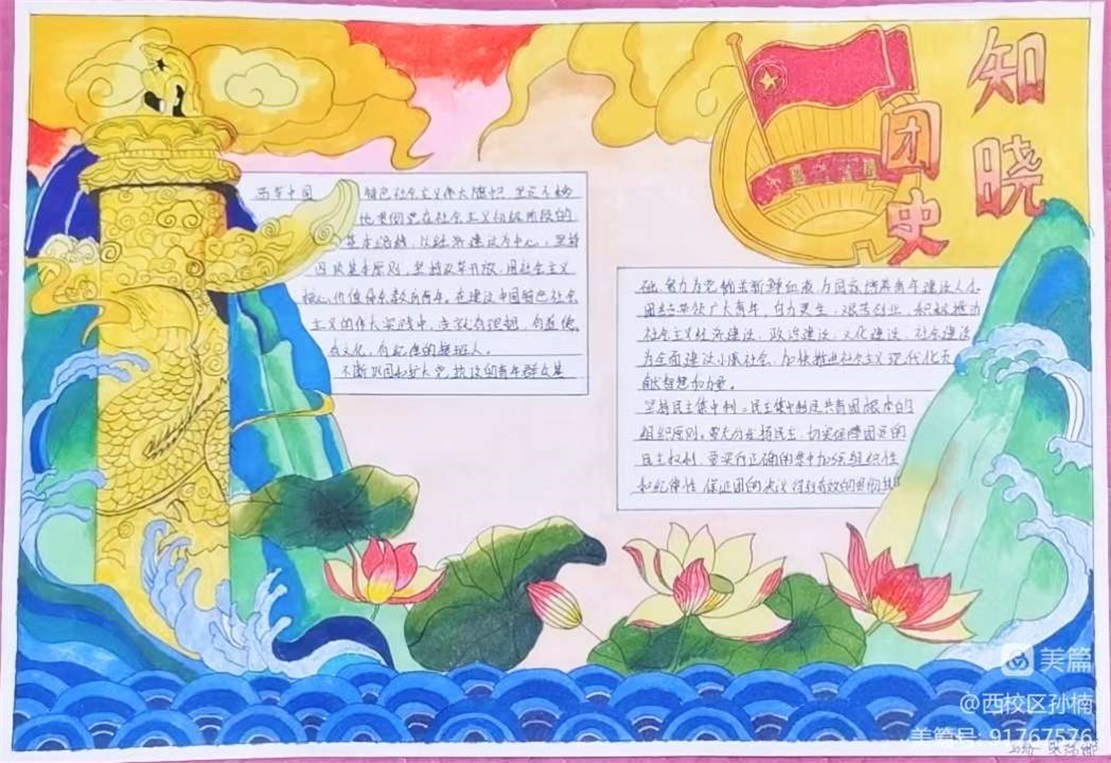 知晓
团史
高举中国
特色社会主义伟大旗帜,坚定不移
地贯彻党在社会主义初级阶段的
基本路线,以经济建设为中心,坚持
四项基本原则,坚持改革开放,用社会主义
核心价值体系教育青年。在建设中国特色社会
主义的伟大实践中,造就有理想,有道德,
有文化,有纪律的接班人。
不断巩固和扩大党执政的青年群众基
础,努力为党输送新鲜血液,为国家培养青年建设人才
团结带领广大青年,自力更生,艰苦创业,积极推动
社会主义经济建设,政治建设,文化建设,社会建设
为全面建设小康社会,加快推进社会主义现代化贡
献智慧和力量。
坚持民主集中制。民主集中制是共青团根本的
组织原则。要充分发扬民主,切实保障团员的
民主权利,要实行正确的集中加强组织性
和纪律性,保证团的决议得到有效的贯彻执
美篇
@西校区孙楠
美篇号: 91767576